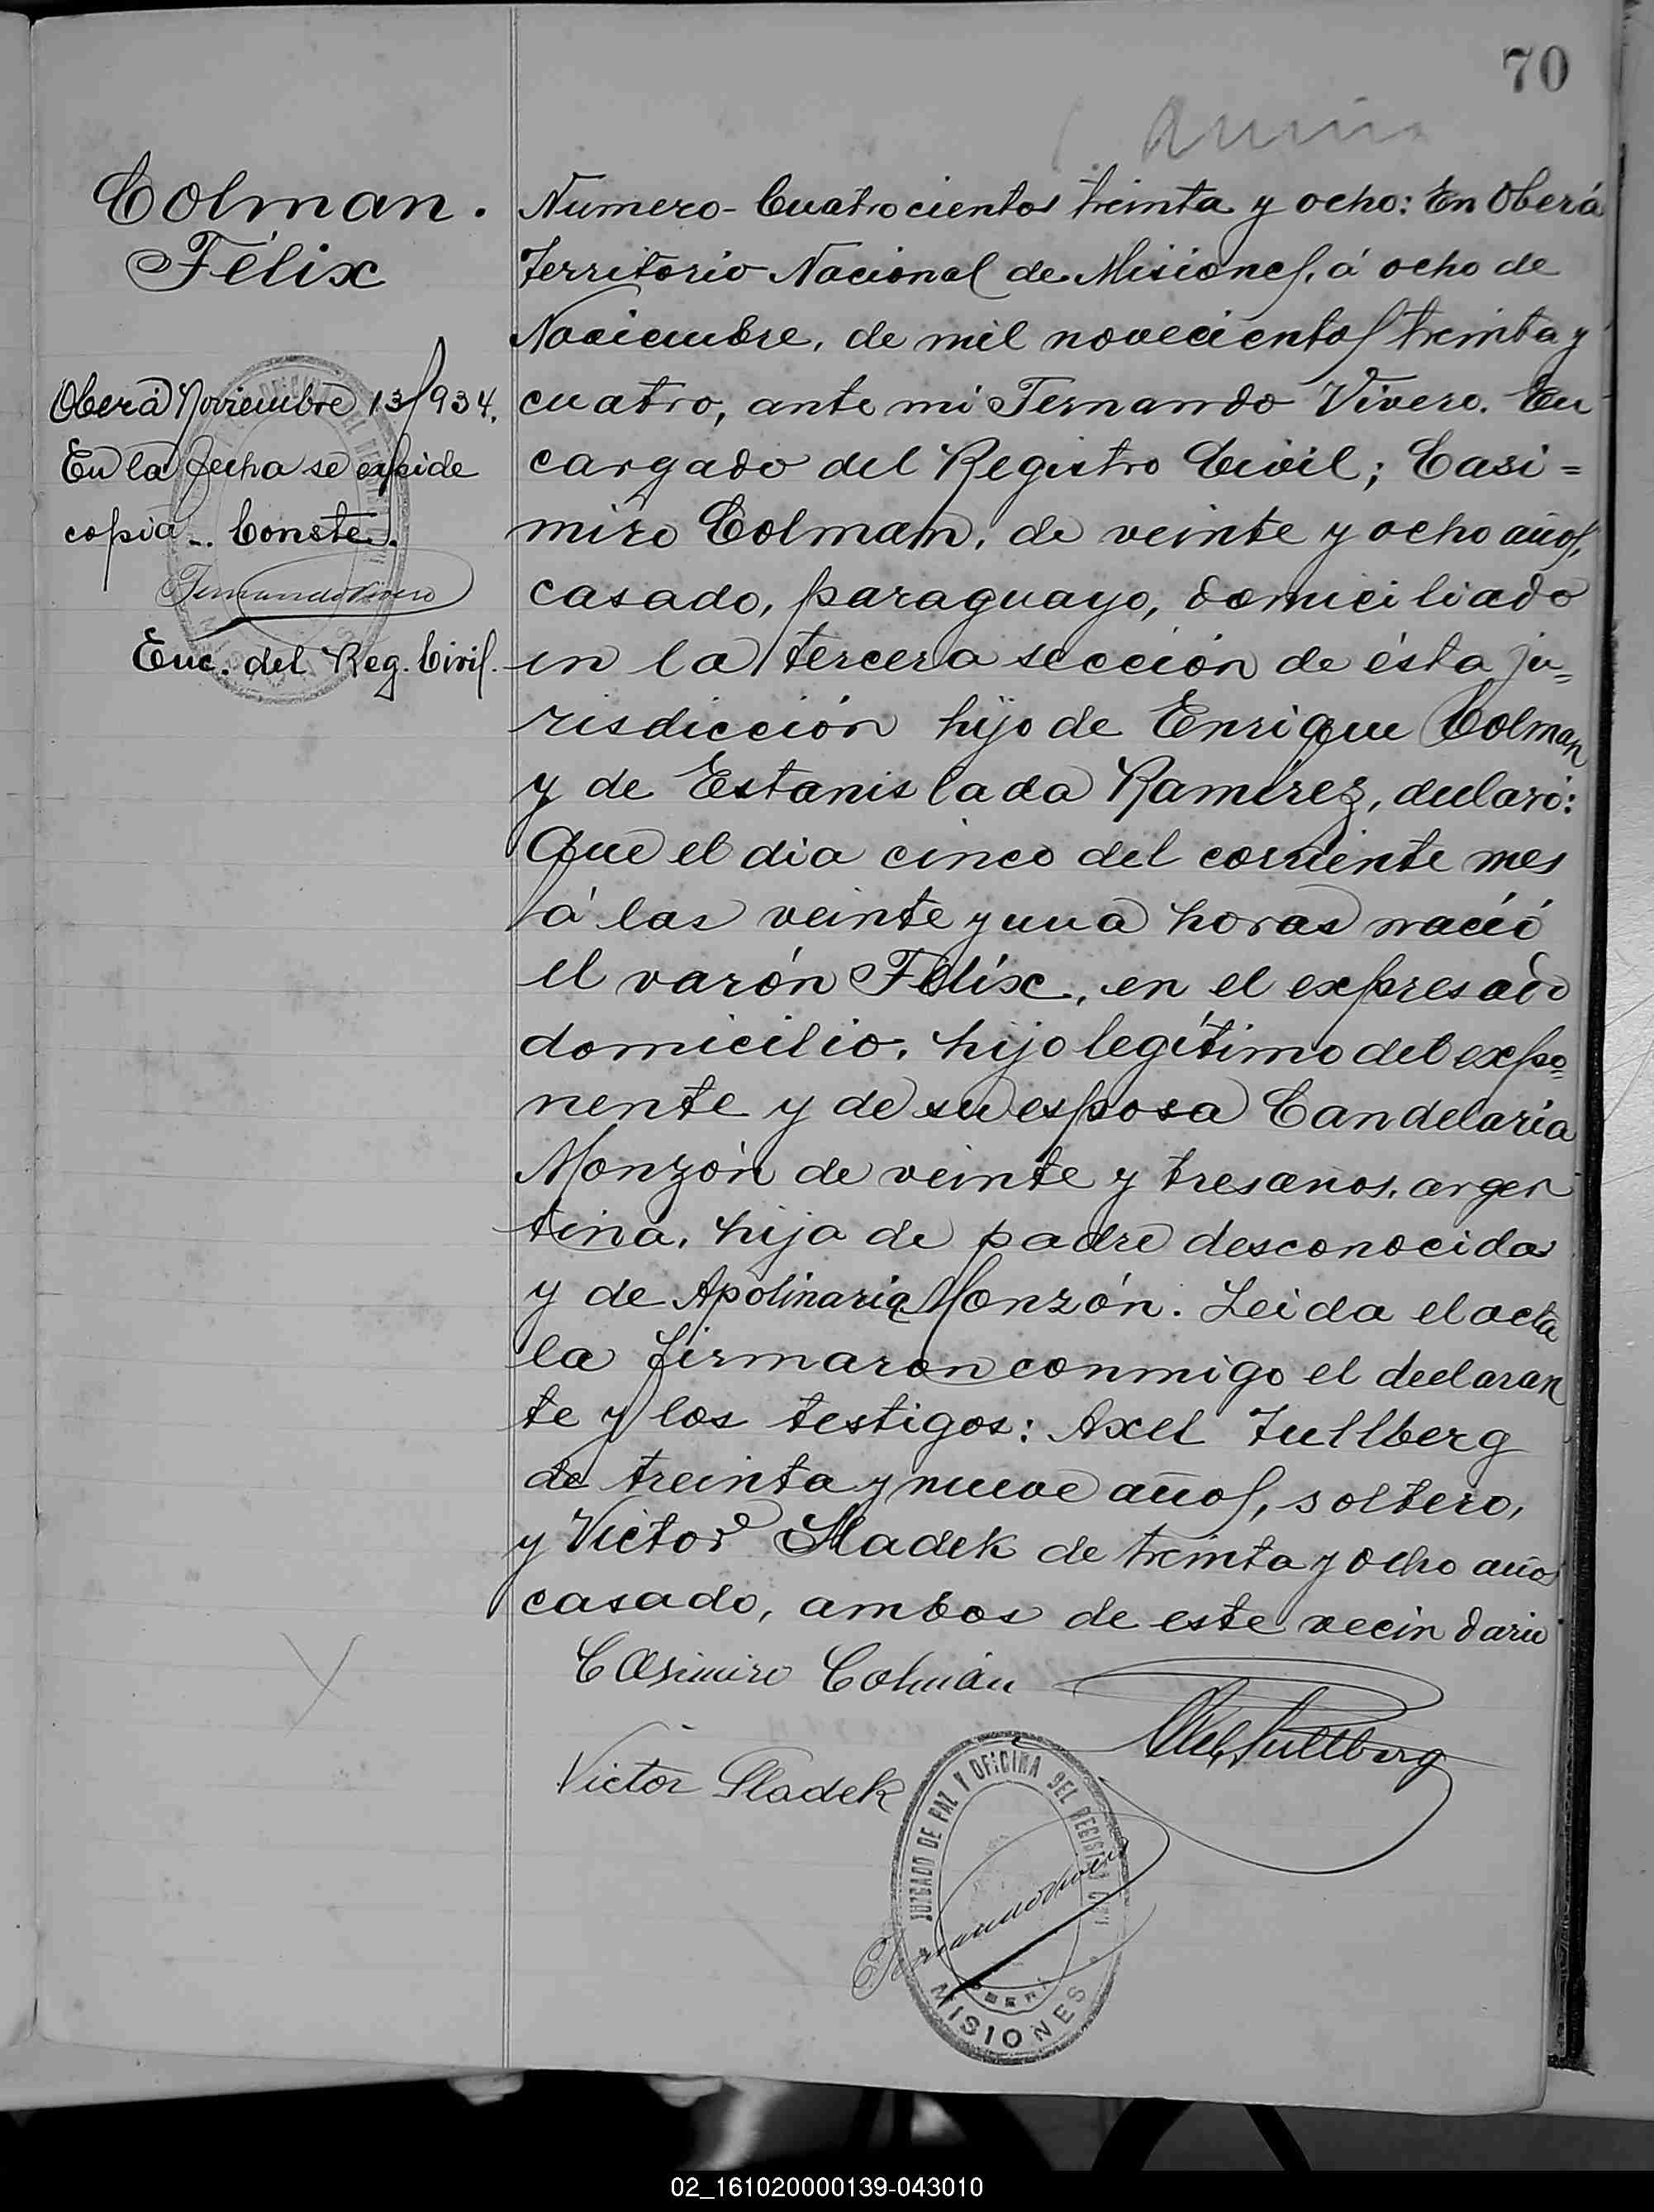 70
Colman.
Félix
Oberá Noviembre 13/934.
En la fecha se expide
copia. Conste.
Fernando Vivero
Enc. del Reg. Civil.
Numero Cuatrocientos treinta y ocho: En Oberá
Territorio Nacional de Misiones, á ocho de
Noviembre, de mil novecientos treinta y
cuatro, ante mi Fernando Vivero. En
cargado del Registro Civil; Casi=
miro Colman, de veinte y ocho años,
casado, paraguayo, domiciliado
en la tercera sección de ésta ju=
risdicción hijo de Enrique Colman
y de Estanislada Ramírez, declaró:
Que el dia cinco del corriente mes
á las veinte y una horas nació
el varón Félix, en el expresado
domicilio, hijo legítimo del expo=
nente y de su esposa Candelaria
Monzón de veinte y tres años, argen
tina, hija de padre desconocido
y de Apolinaria Monzón. Leida el acta
la firmaron conmigo el declaran
te y los testigos: Axel Tullberg
de treinta y nueve años, soltero,
y Victor Sladek de treinta y ocho años
casado, ambos de este vecindario
Casimiro Colmán
Axel Tullberg
Victor Sladek
JUZGADO DE PAZ Y OFICINA DEL REGISTRO CIVIL
Fernando Vivero
OBERÁ
MISIONES
02_161020000139-043010